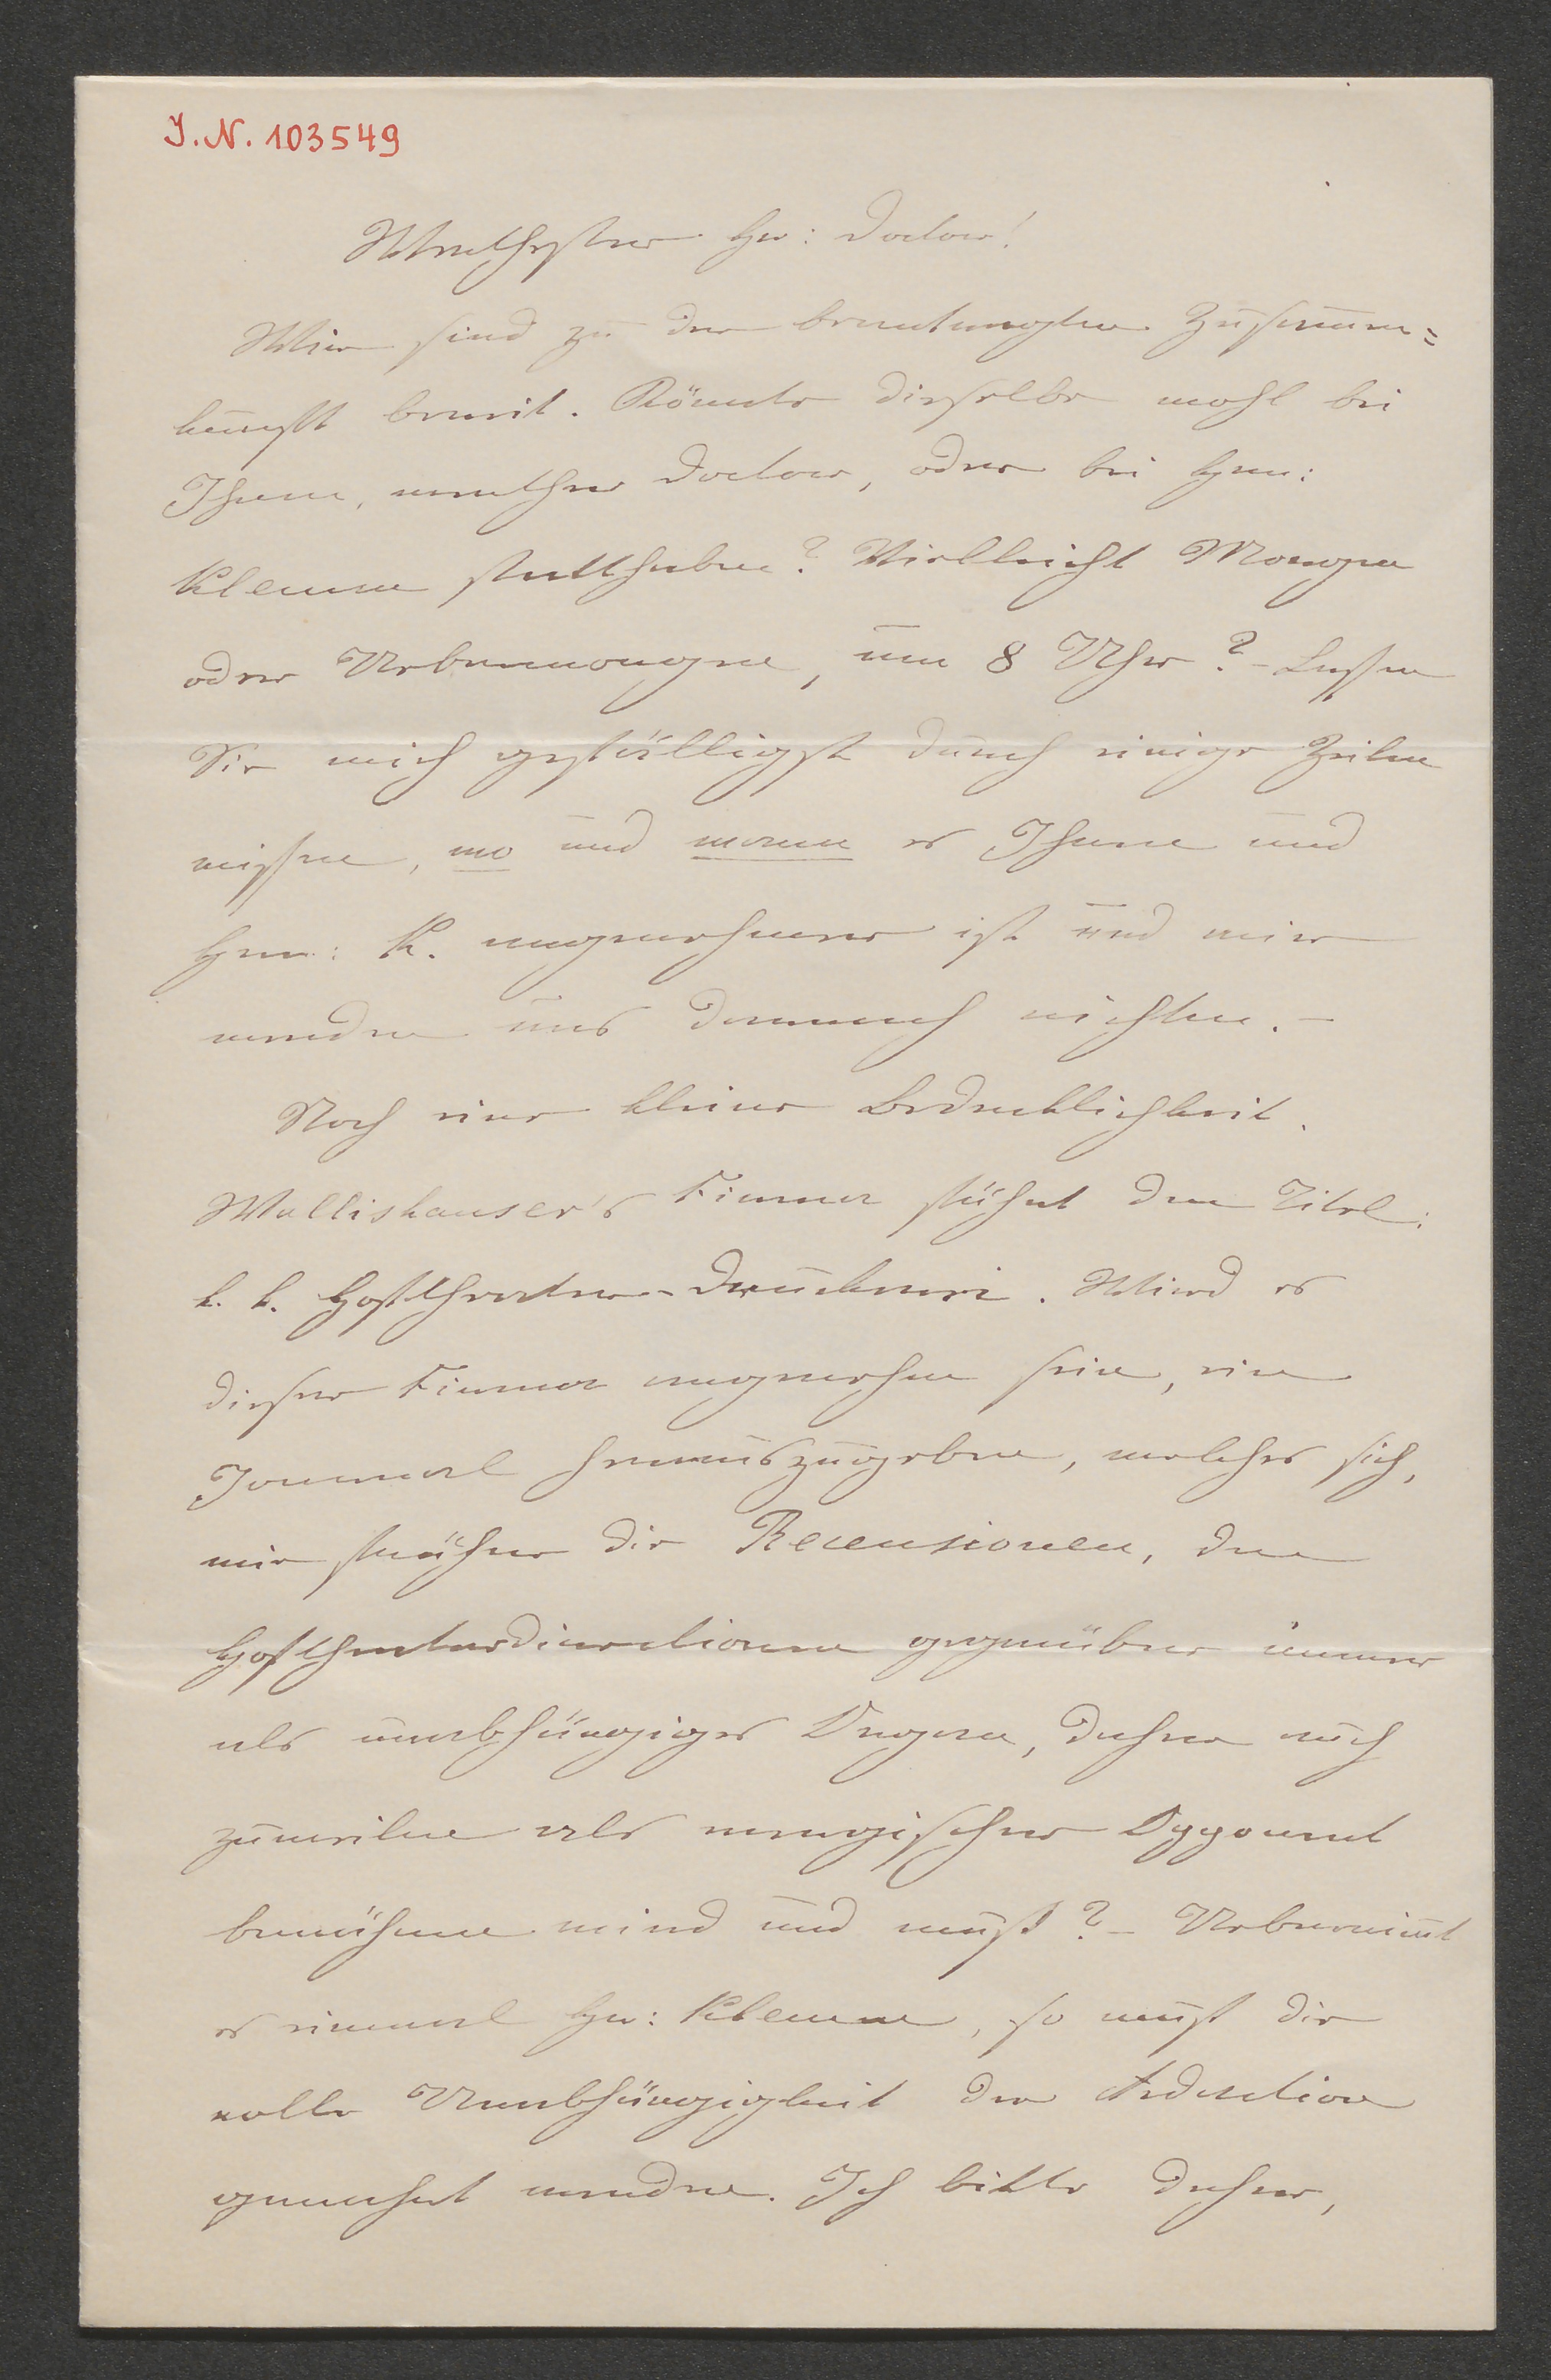 I. N. 103549
Werthester Hr: Doctor!
Wir sind zu der beantragten Zusammen=
kunft bereit. Könnte dieselbe wohl bei
Ihnen, werther Doctor, oder bei Hrn:
Klemm statthaben? Vielleicht Morgen
oder Uebermorgen, um 8 Uhr? – Lassen
Sie mich gefälligst durch einige Zeilen
wissen, wo und wann es Ihnen und
Hrn: K. angenehmer ist und wir
werden uns darnach richten. –
Noch eine kleine Bedenklichkeit.
Wallishausser's Firma führt den Titel:
k. k. Hoftheater-Druckerei. Wird es
dieser Firma angenehm sein, ein
Journal herauszugeben, welches sich,
wie früher die Recensionen, den
Hoftheaterdirectionen gegenüber immer
als unabhängiges Organ, daher auch
zuweilen als energischer Opponent
bewähren wird und muß? – Uebernim̄t
es einmal Hr: Klemm, so muß die
volle Unabhängigkeit der Redaction
gewahrt werden. Ich bitte daher,